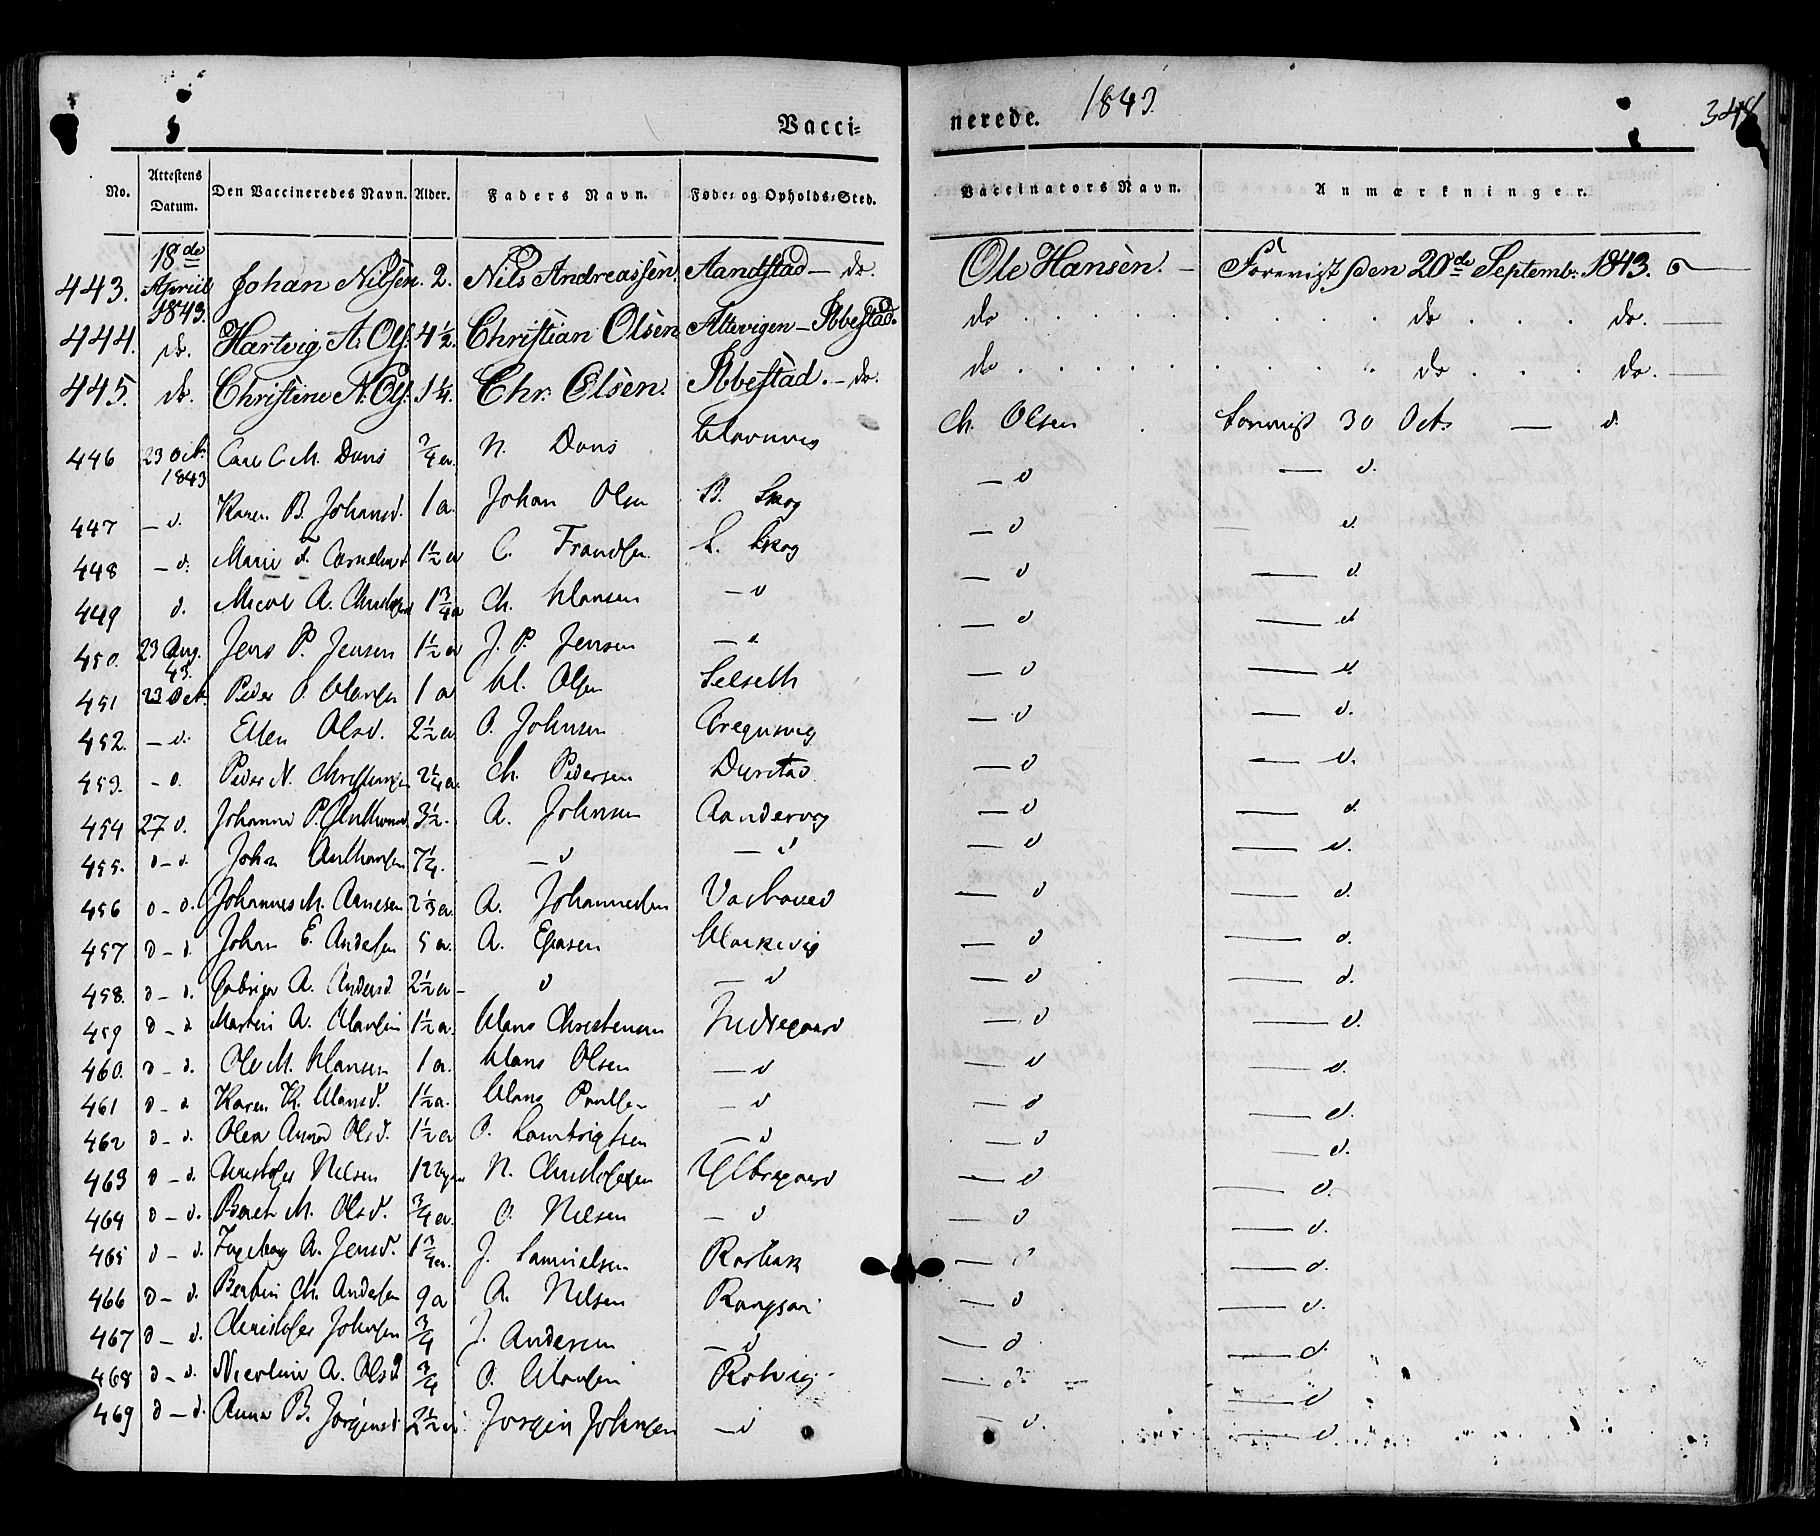 Vacci= nerede. 1843. 348
No. Attestens Datum. Den Vaccineredes Navn. Alder. Faders Navn. Føde= og Opholds=Sted. Vaccinators Navn. Anmærkninger.
443. 18de Apriil 1843. Johan Nilsen. 2. Nils Andreassen. Aandstad — do. Ole Hansen. — Foreviist den 20de Septembr. 1843.
444. do. Hartvig A. Ols. 4½. Christian Olsen Attevigen — Ibbestad. do do do.
445. do. Christine N. Ols. 1¼. Chr. Olsen. Ibbestad. — do. do do do.
446 23 Oct. 1843 Carl C. M. Dons ¾ a. N. Dons Havnvig Ch. Olsen foreviist 30 Oct. — d.
447 — d. Karen B. Johansd. 1 a. Johan Olsen B. Skog — d — d.
448 — d. Marie F. Cornelius d. 1½ a C. Frandsen L. Skog — d d.
449 d. Nicol A. Christofers 1¾ a Ch. Hansen — d — d — d.
450. 23 Aug. 43. Jens P. Jensen 1½ a J. P. Jensen — d — d — d
451 23 Oct. Peder O. Hansen 1 a H. Olsen Selseth — d — d
452. — d. Ellen Olsd. 2½ a. O. Johnsen Gregusvig — d — d.
453. — d. Peder N. Christiansen 2¼ a. Ch. Pedersen Durstad — d — d.
454 27 d. Johanna P. Anthonsd. 3½. A. Johnsen Aandervog — d — d.
455. d — d. John Anthonsen 7¼. — d — d — d — d.
456 d — d. Johannes M. Arnesen 2⅓ a. A. Johannesen — d — d.
457 d — d. Johan E. Andersen 5 a. A. Efrasen Harkevig — d — d.
458. d — d. A. Andersd. 2½ a — d — d — d — d.
459 d — d Martin A. Hansen 1½ a. Hans Christensen Indregaard — d — d.
460. d — d. Ole M. Hansen 1 a. Hans Olsen — d — d — d.
461 d — d Karen K. Hansd. 1½ a. Hans Paulsen — d — d — d.
462 d — d. Olea Anna Olsd. 1½ a O. Lambrigtsen — d — d — d.
463 d — d. Christofer Nilsen N. Christofersen Ytregaard — d — d.
464 d — d. Beret M. Olsd. ¾ a. O. Nilsen — d — d — d.
465 d — d. Ingeborg A. Jensd. 1¾ a. J. Samuelsen Rotbak — d — d.
466 d — d. Bertin Ch. Andersen 9 a A. Nilsen — d — d.
467 d — d. Christofer Johnsen ¾ J. Andersen — d — d — d.
468 d — d. Nicoline A. Olsd ¾ O. Hansen Rotvig — d — d
469 d — d. Anna B. Jørgensd. 2½ a Jørgen Johnsen — d — d. — d.